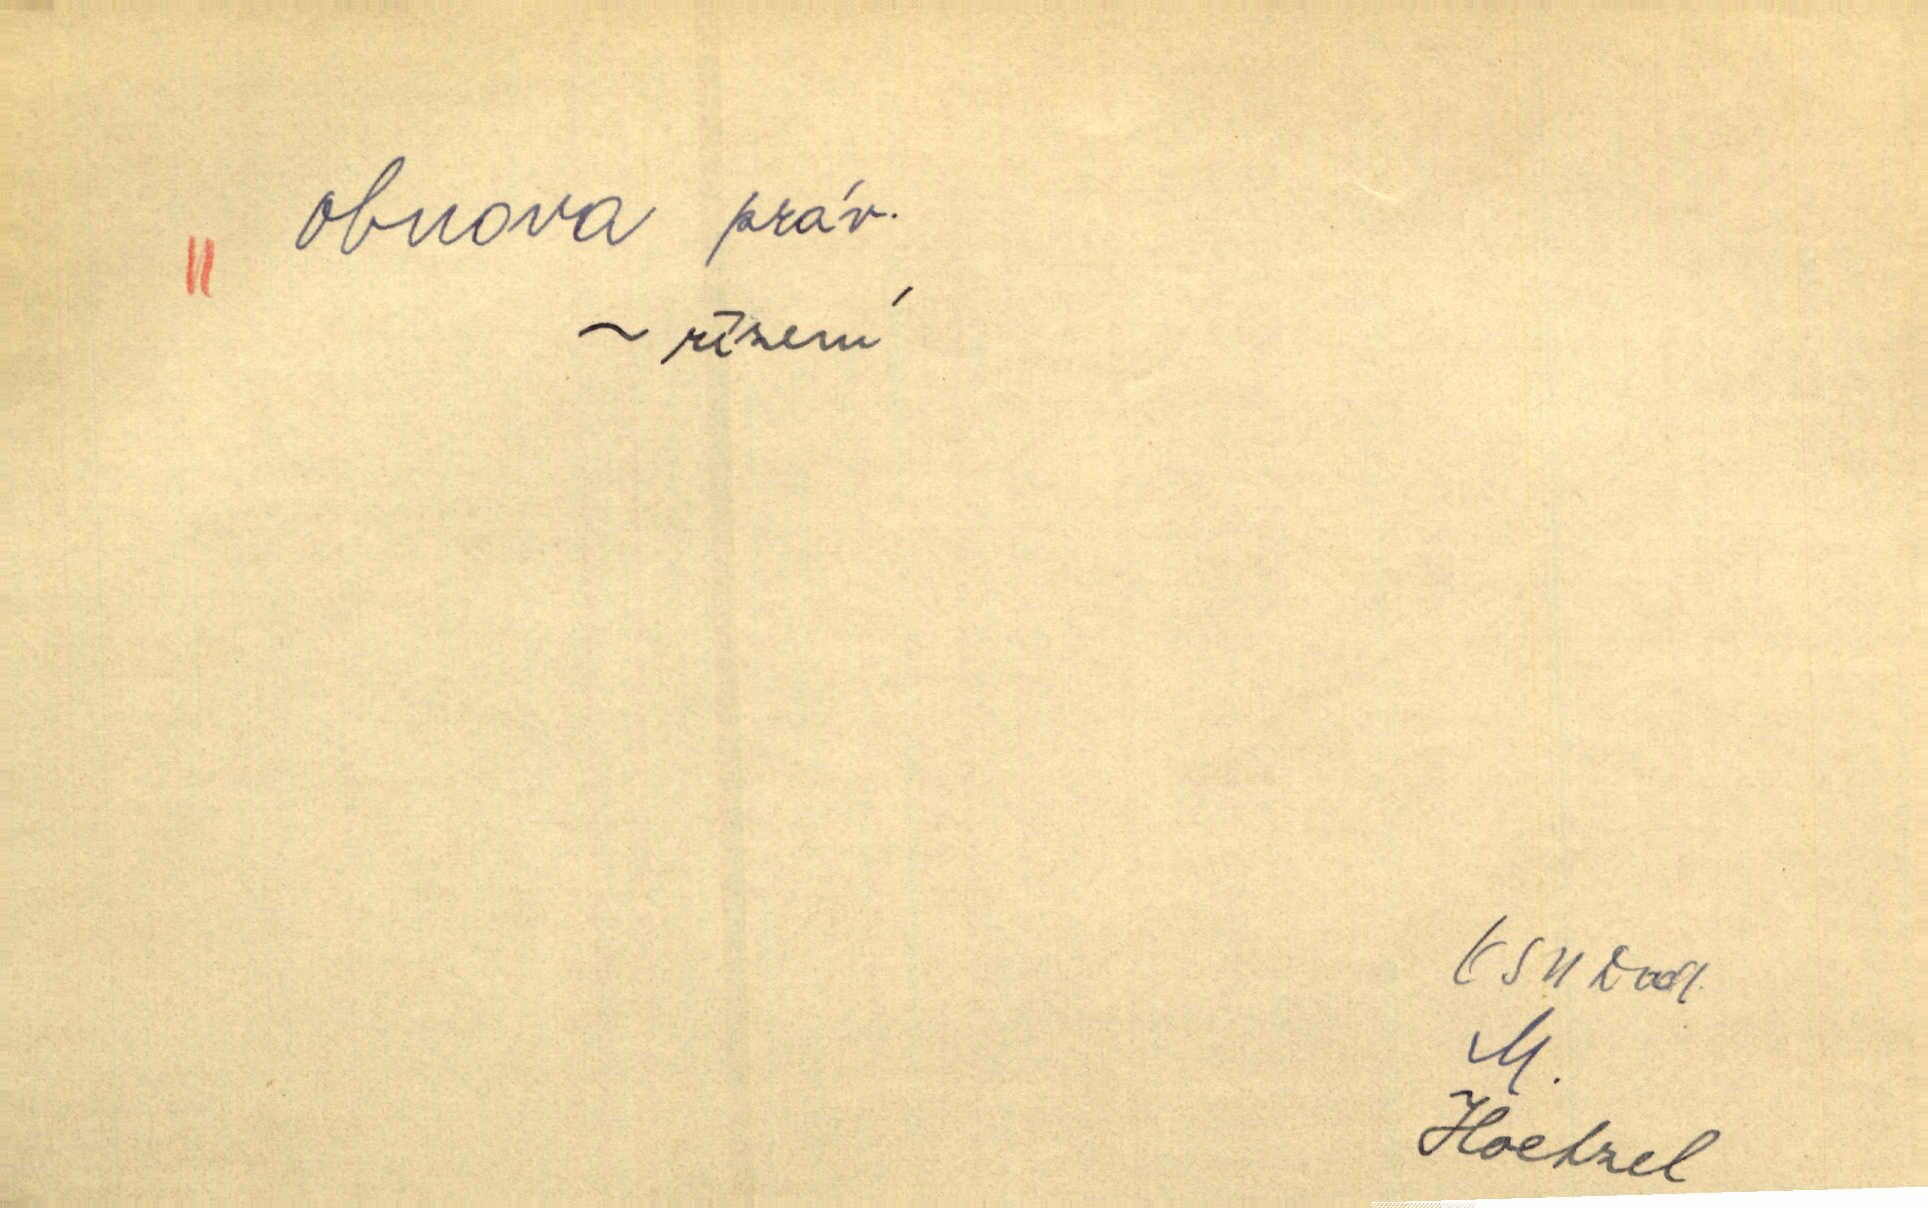 obnova práv.
~ řízení
KSN Dod.
M.
Hoetzel